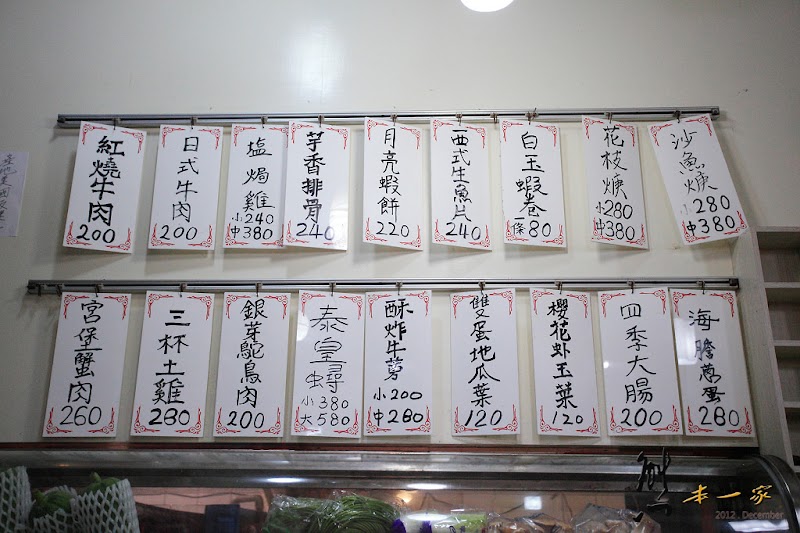 紅燒牛肉
200
日式牛肉
200
塩焗雞
小240
中380
芋香排骨
240
月亮蝦餅
220
西式生魚片
240
白玉蝦卷
一條80
花枝焿
小280
中380
沙魚焿
小280
中380
宮堡蟹肉
260
三杯土雞
280
銀芽鴕鳥肉
200
泰皇蟳
小380
大580
酥炸牛蒡
小200
中280
雙蛋地瓜葉
120
櫻花虾玉菜
120
四季大腸
200
海膽蔥蛋
280
本一家
2012 . December